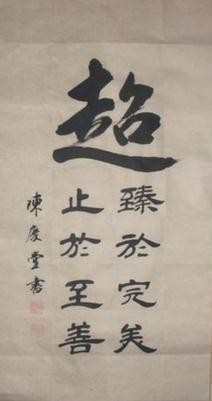 超
臻於完美
止於至善
陳慶堂書